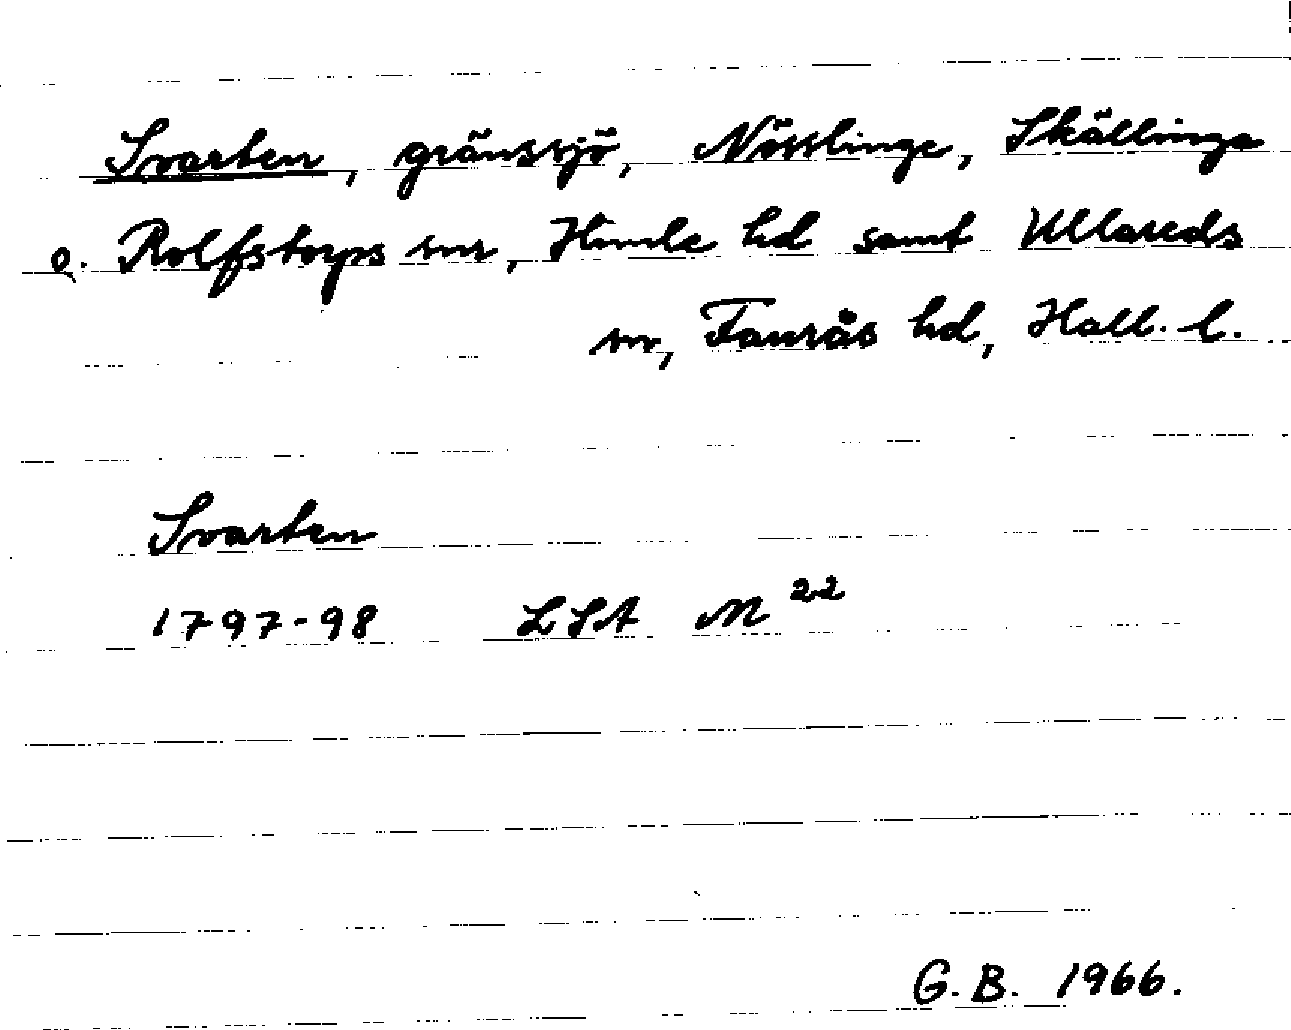 Svarten, gränssjö, Nösslinge, Skällinge
o. Rolfstorps snr, Himle hd samt Ullareds
sn, Faurås hd, Hall. l.
Svarten
1797-98 LSA M 22
G.B. 1966.